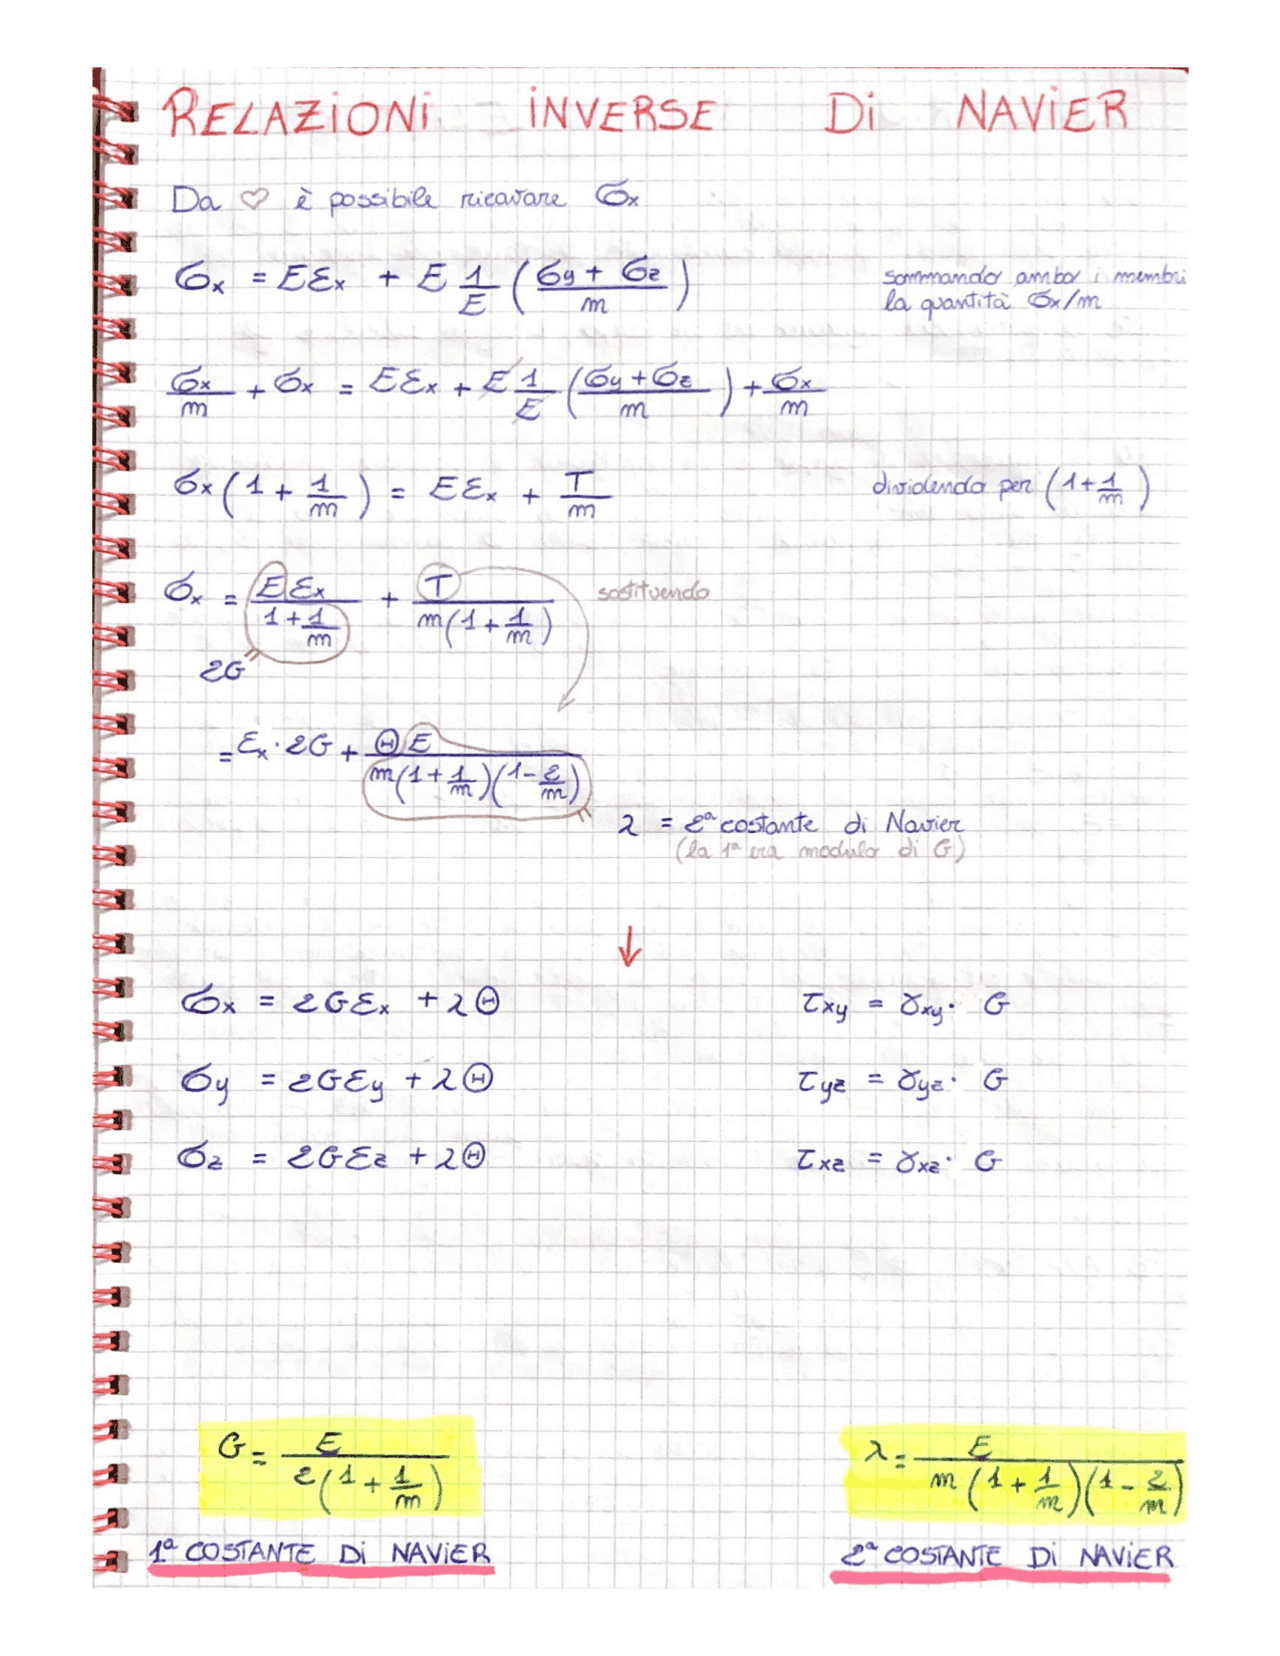 RELAZIONI INVERSE DI NAVIER
Da ♡ è possibile ricavare σx
σx = Eεx + E 1/E ((σy + σz)/m) sommando ambo i membri
la quantità σx/m
σx/m + σx = Eεx + E 1/E ((σy + σz)/m) + σx/m
σx (1 + 1/m) = Eεx + T/m dividendo per (1 + 1/m)
σx = Eεx/(1 + 1/m) + T/(m(1 + 1/m)) sostituendo
2G
= εx · 2G + ΘE/(m(1 + 1/m)(1 - 2/m))
λ = 2ª costante di Navier
(la 1ª era modulo di G)
↓
σx = 2Gεx + λΘ τxy = γxy · G
σy = 2Gεy + λΘ τyz = γyz · G
σz = 2Gεz + λΘ τxz = γxz · G
G = E/(2(1 + 1/m)) λ = E/(m(1 + 1/m)(1 - 2/m))
1ª COSTANTE DI NAVIER 2ª COSTANTE DI NAVIER